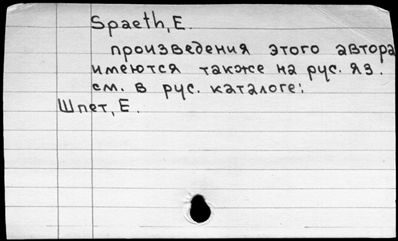 Spaeth, E.
произведения этого автора
имеются также на рус. яз.
см. в рус. каталоге:
Шпет, Е.